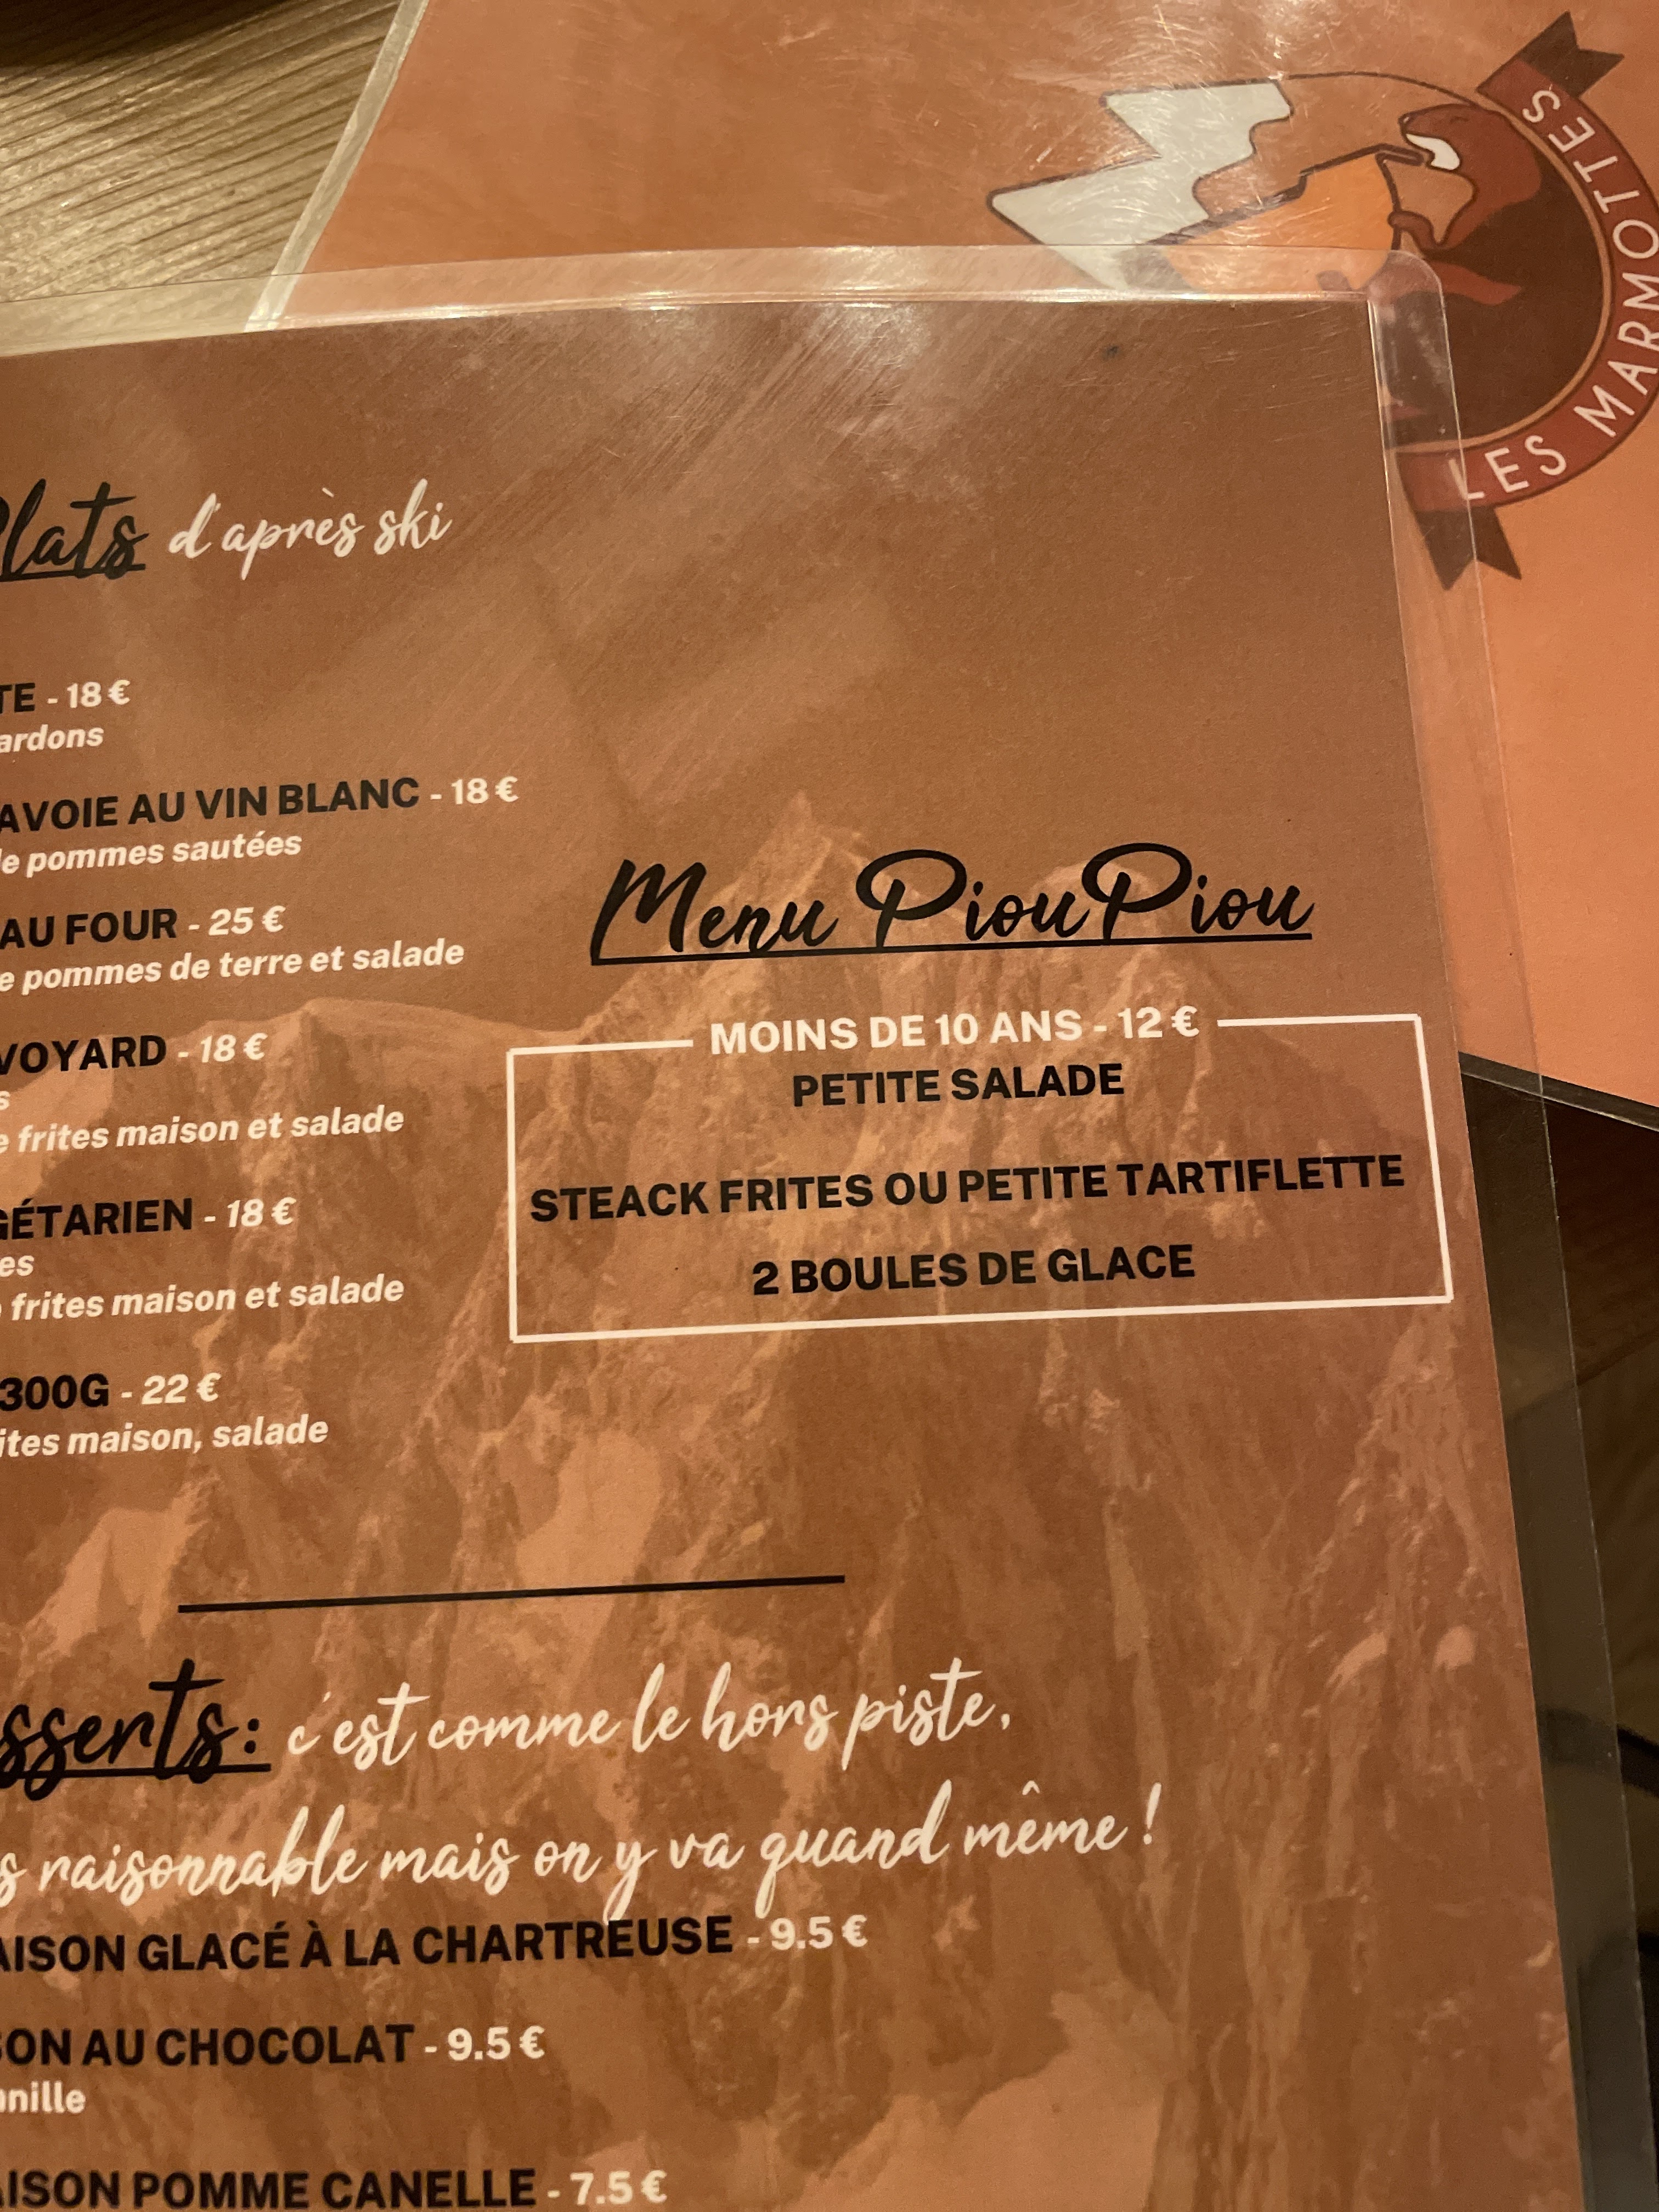 LES MARMOTTES
Plats d'après ski
- 18 €
- 18 €
AU VIN BLANC
pommes sautées
AU FOUR - 25 €
pommes de terre et salade
- 18 €
frites maison et salade
- 18 €
frites maison et salade
300G - 22 €
maison, salade
Menu PiouPiou
MOINS DE 10 ANS - 12 €
PETITE SALADE
STEACK FRITES OU PETITE TARTIFLETTE
2 BOULES DE GLACE
c'est comme le hors piste,
raisonnable mais on y va quand même !
GLACÉ À LA CHARTREUSE - 9.5 €
AU CHOCOLAT - 9.5 €
POMME CANELLE - 7.5 €